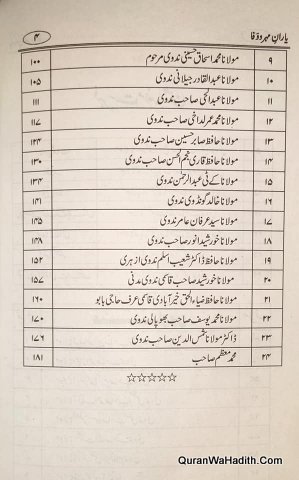 یاران مہر و وفا ۴
۹ مولانا محمد اسحاق حسینی ندوی مرحوم ۱۰۰
۱۰ مولانا عبدالقادر جیلانی ندوی ۱۰۵
۱۱ مولانا عبدالحی صاحب ندوی ۱۱۱
۱۲ مولانا محمد عمر لداخی صاحب ندوی ۱۱۷
۱۳ مولانا حافظ صابر حسین صاحب ندوی ۱۲۴
۱۴ مولانا حافظ قاری نجم الحسن صاحب ندوی ۱۳۰
۱۵ مولانا کے ٹی عبدالرحمٰن ندوی ۱۳۴
۱۶ مولانا خالد گونڈوی ندوی ۱۴۱
۱۷ مولانا سید عرفان عامر ندوی ۱۴۵
۱۸ مولانا خورشید انور صاحب ندوی ۱۴۸
۱۹ مولانا حافظ ڈاکٹر شعیب اسلم ندوی ازہری ۱۵۲
۲۰ مولانا خورشید صاحب قاسمی ندوی مدنی ۱۵۷
۲۱ مولانا حافظ ضیاء الحق خیرآبادی قاسمی عرف حاجی بابو ۱۶۰
۲۲ مولانا محمد یوسف صاحب بھوپالی ندوی ۱۷۰
۲۳ ڈاکٹر مولانا شمس الدین صاحب ندوی ۱۷۶
۲۴ محمد معظم صاحب ۱۸۱
☆☆☆☆☆
QuranWaHadith.Com